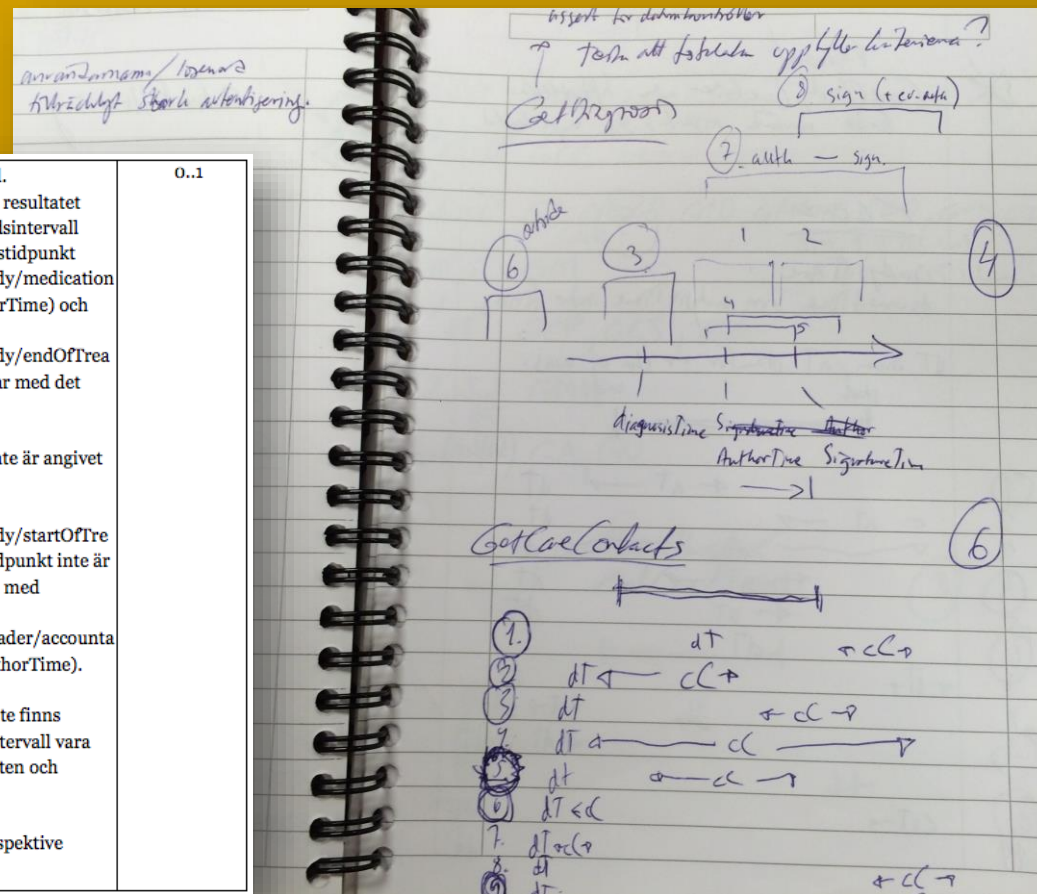 användarnamn/lösenord
tillräckligt stark autentisering.
l.
resultatet
lsintervall
stidpunkt
dy/medication
rTime) och
dy/endOfTrea
ar med det
nte är angivet
dy/startOfTre
dpunkt inte är
med
ader/accounta
thorTime).
te finns
tervall vara
ten och
spektive
0..1
assert för
↑ Testa att uppfyller kriterierna?
GetDiagnosis
8 sign (+ ev. auth)
7 auth — sign.
6
3
1 2
4
4
5
diagnosisTime SignatureTime Author
AuthorTime SignatureTime
GetCareContacts
6
1. dT ← cC →
2 dT ← cC →
3 dt ← cC →
4. dT ← cC →
5 dt ← c →
6 dT ← cC
7. dT ← cC →
8. dT
← cC →
9 dT